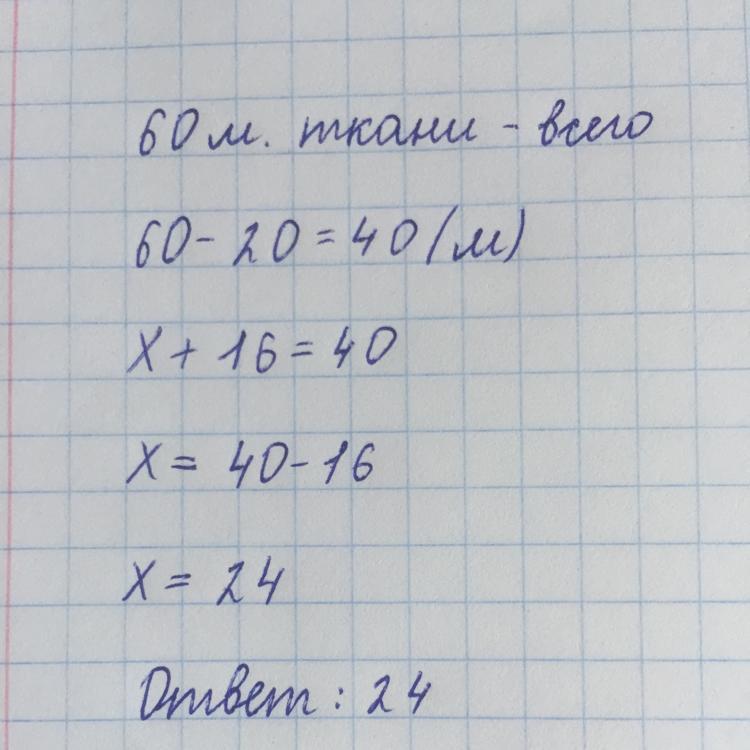 60 м. ткани - всего
60 - 20 = 40 (м)
х + 16 = 40
х = 40 - 16
х = 24
Ответ: 24